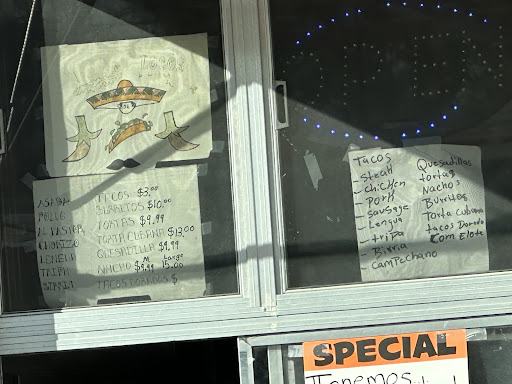 Tacos
OPEN
ASADA TACOS $3.00
POLLO BURRITOS $10.00
AL PASTOR TORTAS $9.99
CHORIZO TORTA CUBANA $13.00
LENGUA QUESADILLA $9.99
TRIPA NACHO M $9.99 Large 15.00
BIRRIA TACOS DORADOS $
Tacos Quesadillas
- Steak tortas
- chicken Nachos
- Pork Burritos
- sausage Torta cubana
- Lengua tacos Dorado
- tripa Com Elote
- Birria
- Campechano
SPECIAL
Tenemos